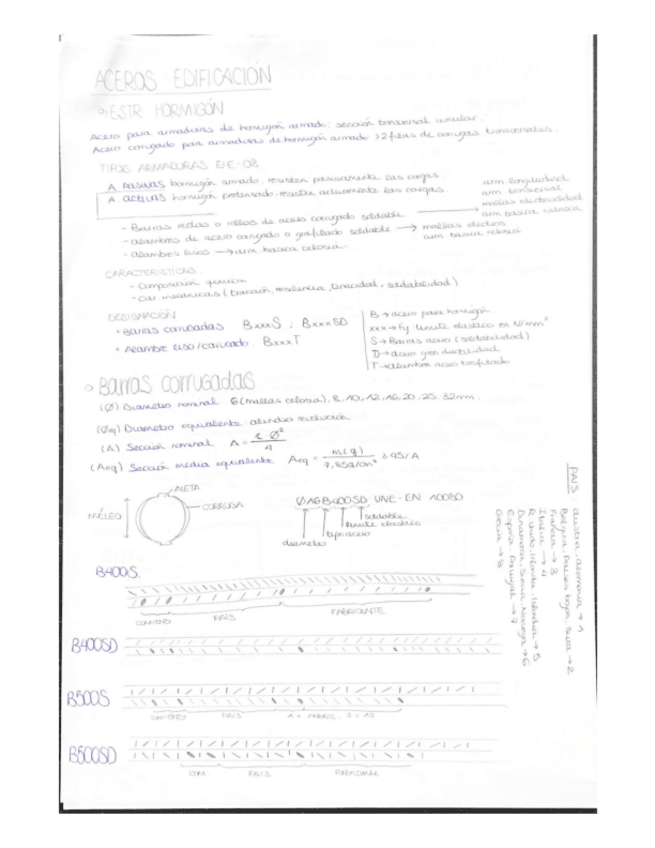 ACEROS EDIFICACIÓN
ESTR HORMIGÓN
Acero para armaduras de hormigón armado: sección transversal circular.
Acero corrugado para armaduras de hormigón armado > 2 filas de corrugas transversales.
TIPOS ARMADURAS EHE-08
A pasivas hormigón armado, resisten pasivamente las cargas.
A activas hormigón pretensado, resisten activamente las cargas.
- Barras rectas o rollos de acero corrugado soldable →
arm. longitudinal
arm. transversal
mallas electrosoldad
arm básica celosía
- alambres de acero corrugado o grafilado soldable →
mallas electros
arm básica celosía
- alambres lisos → arm. básica celosía.
CARACTERÍSTICAS.
- Composición química
- Car. mecánicas (tracción, resiliencia, tenacidad, soldabilidad)
DESIGNACIÓN
• Barras corrugadas BxxxS ; BxxxSD
• Alambre liso/corrugado. BxxxT
B → acero para hormigón
xxx → Fy límite elástico en N/mm²
S → Barras acero (soldabilidad)
D → acero gran ductilidad
T → alambre acero trefilado
Barras corrugadas
(Ø) Diámetro nominal 6 (mallas celosía), 8, 10, 12, 16, 20, 25, 32mm.
(Øeq) Diámetro equivalente:
(A) Sección nominal A = Ø² / 4
(Aeq) Sección media equivalente Aeq = m(g) / 7,85g/cm³ ≥ 95/A
ALETA
NÚCLEO
CORRUGA
Ø16B400SD UNE-EN 10080
soldable
límite elástico
tipo acero
diámetro
PAÍS: Austria, Alemania → 1
Bélgica, Países bajos, Suiza → 2
Francia → 3
Italia → 4
R. Unido, Irlanda, Islandia → 5
Dinamarca, Suecia, Noruega → 6
España, Portugal → 7
Grecia → 8
B400S.
COMIENZO
PAÍS
FABRICANTE
B400SD
B500S
COMIENZO
PAÍS
B500SD
COM.
PAÍS
FABRICANTE